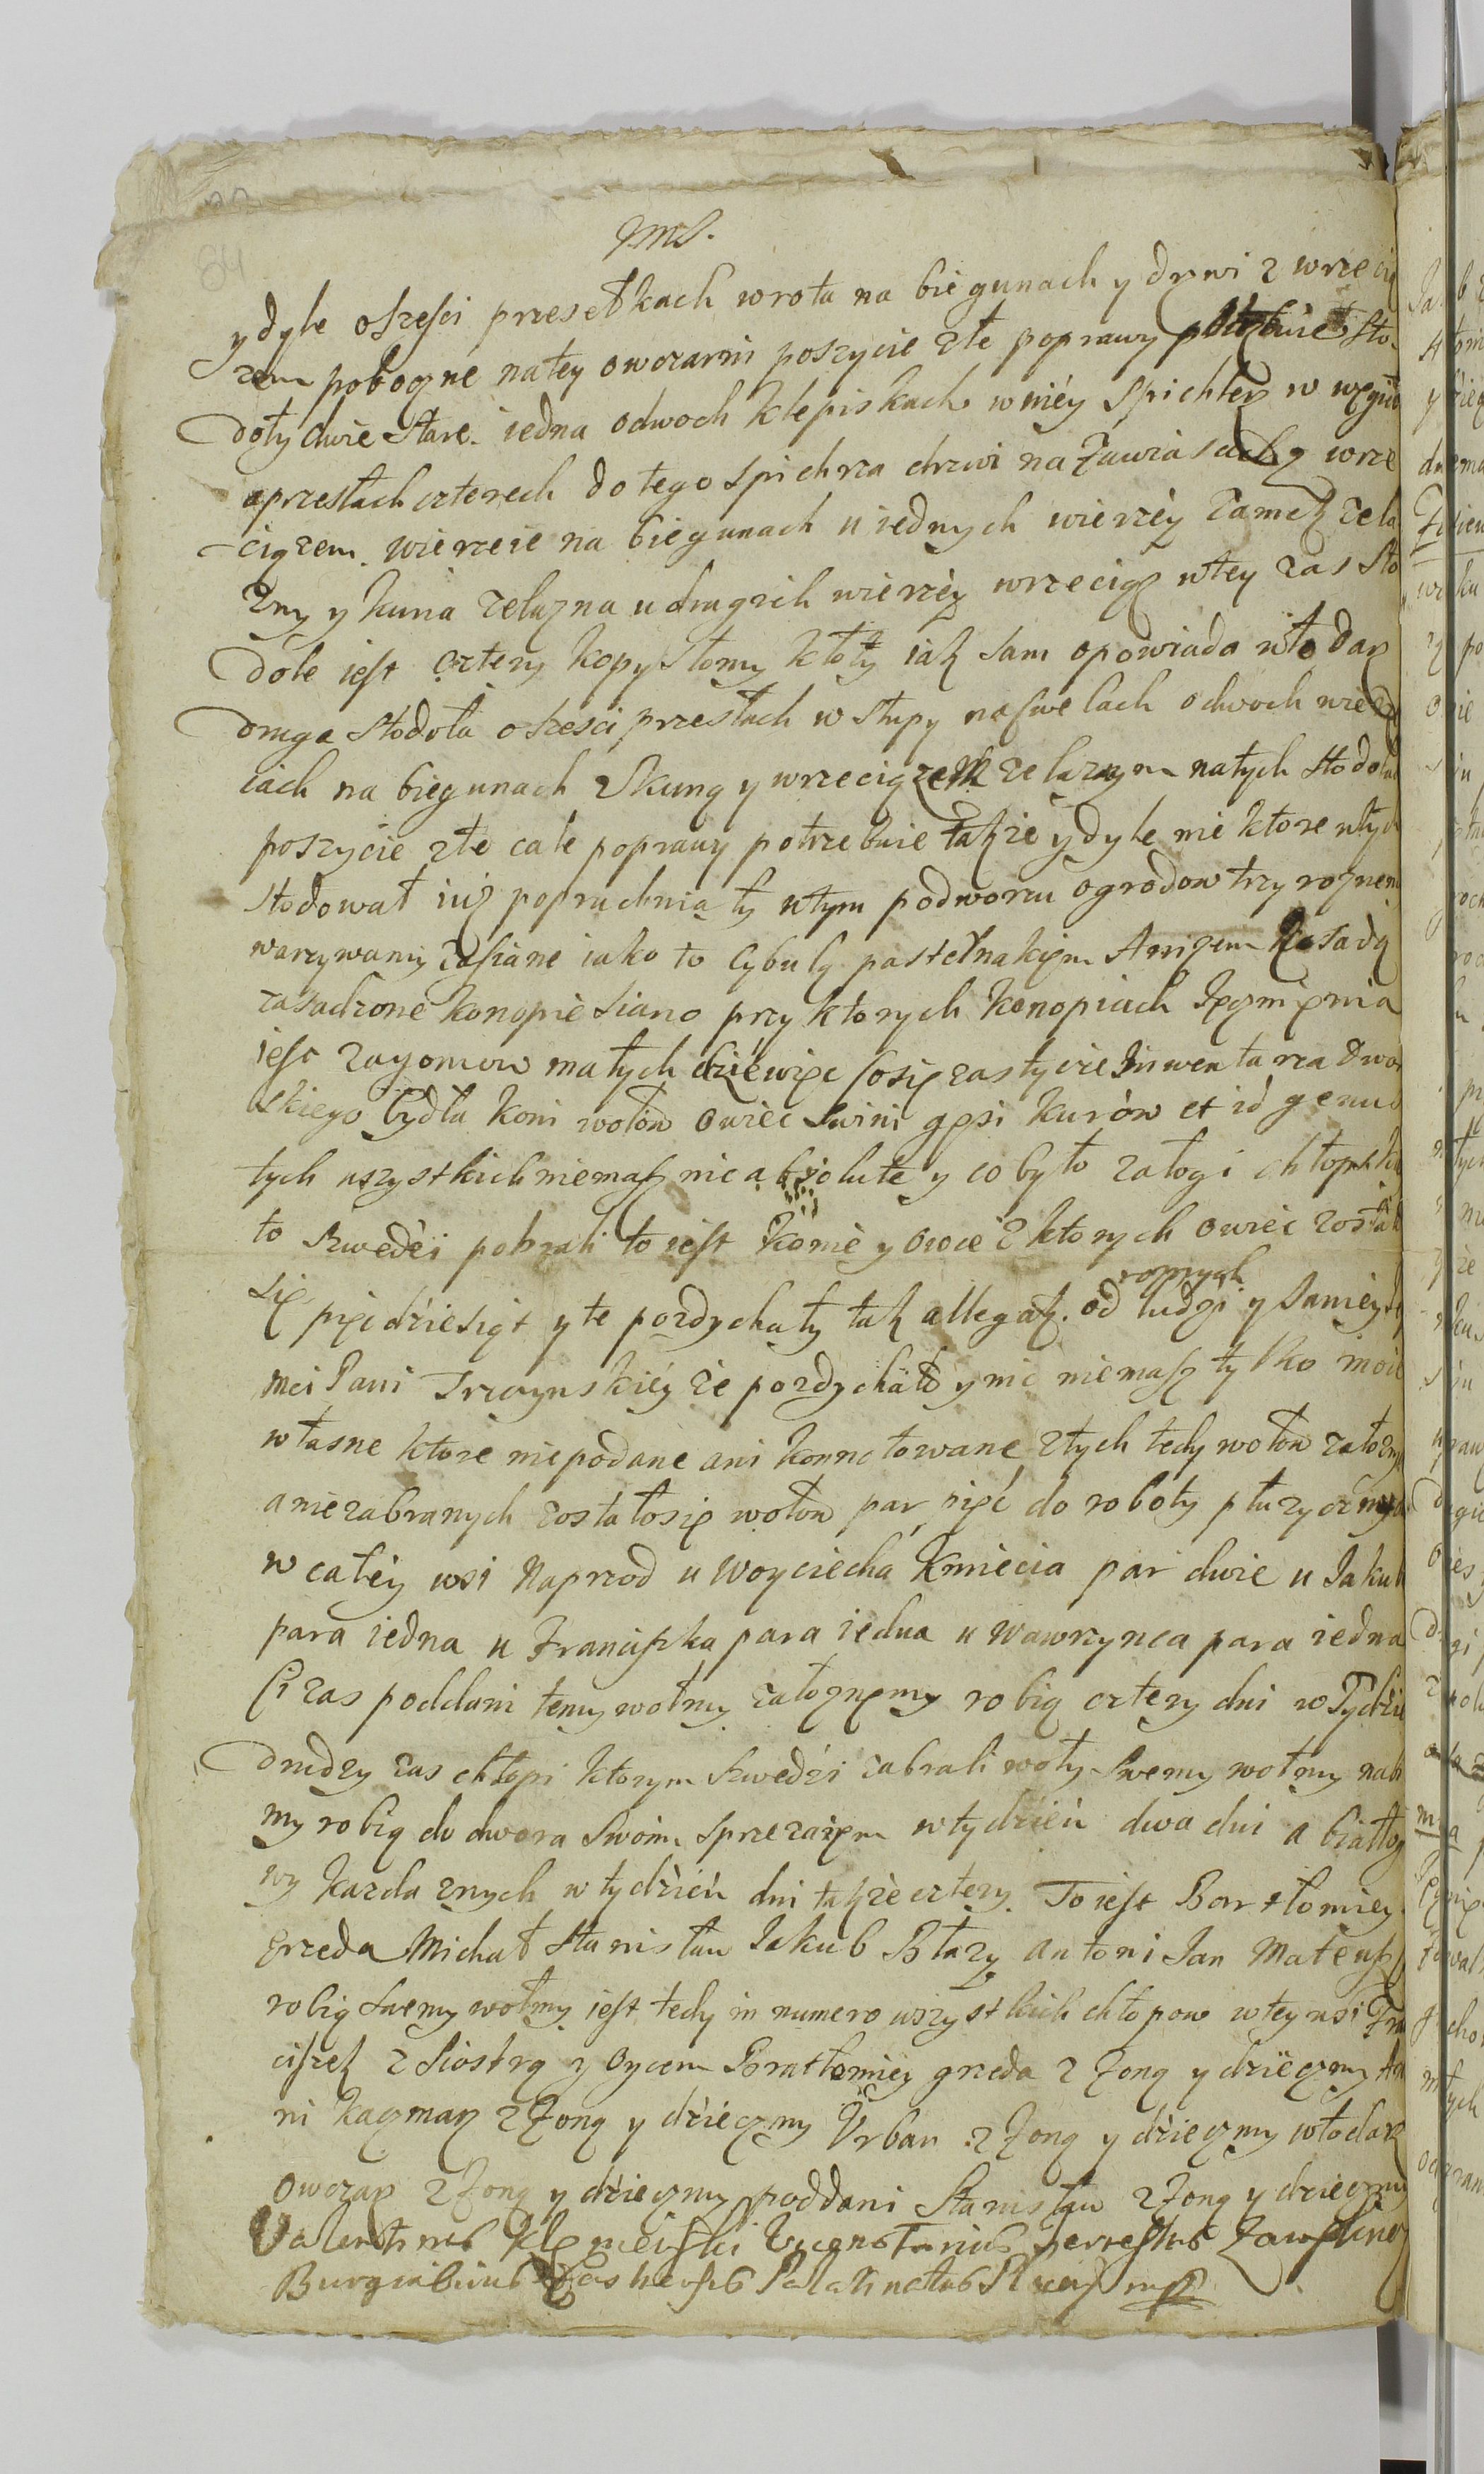 84
ydyle oszesci przesełkach wrota na biegunach y drzwi z wrzecią
zem poboczne natey owczarni poszycie złe poprawy potrzebuie sto
doły dwie stare. iedna odwoch klepiskach w niey spichlerz w węgieł
oprzesłach czterech do tego spichrza drzwi na zawiasach z wrze
ciązem. wierzeie na biegunach u iednych wierzey zamek zela
zny y kuna zelazna u drugich wierzey wrzeciąz wtey zas sto
dole iest cztery kopy słomy ktoty iak sam opowiada włodarz
druga stodoła oszesci przesłach w słupy naswelach odwoch wierze
iach na biegunach zkuną y wrzeciązem zelaznym natych stodołach
poszycie złe całe poprawy potrzebuie takze y dyle nie ktore wtych
stodował iuz popruchniały wtym podworzu ogrodow trzy roznemi
warzywamy zasiane iako to cybulą pasternakiem Anizem
zasadzone konopie siano przy ktorych konopiach Ięczmięnia
iest zagonow małych dziéwięc cosię zas tycze Inwentarza dwor
skiego bydła koni wołow owiec swini gęsi kurow et id genus
tych wszystkich niemasz nic absolute y co było załogi chłopskiey
to szwedzi pobrali to iest konie y owce z ktorych owiec zostało
się pięcdziesiąt y te pozdychały tak allegat. od ludzi y samey Iey
mci Pani Trzcynskiéy ze pozdychało y nic niemasz tylko moie
własne ktore niepodane ani konnotowane ztych tedy wołow załozny
aniezabranych zostałosię wołow par pięć do roboty płuzycznych
w całey wsi Naprzod u Woyciecha kmiecia par dwie u Jakuba
para iedna u Franciszka para iedna u Wawrzynca para iedna
Ci zas poddani temy wołmy załoznęmy robią cztery dni w Tydzie
drudzy zas chłopi ktorym szwedzi zabrali woły swemy wołmy nab
my robią do dwora swoim sprzezaięm wtydzień dwa dni a białog
wy kazda znych w tydzień dni takze cztery. To iest Bartłomiey
grzeda Michał Stanisław Jakub Błazy Antoni Jan Mateusz
robią swemy wołmy iest tedy in numero wszystkich chłopow wtey wsi Fran
ciszek z siostrą y oycem Bratłomiey grzeda z zoną y dzieczmy An
ni kaczmarz z zoną y dzieczmy Urban z zoną y dzieczmy włodarz
Owczarz z zoną y dzieczmy poddani Stanisław z zoną y dzieczmy
Valentinus Terrestris
Burgrabius Palatinatus